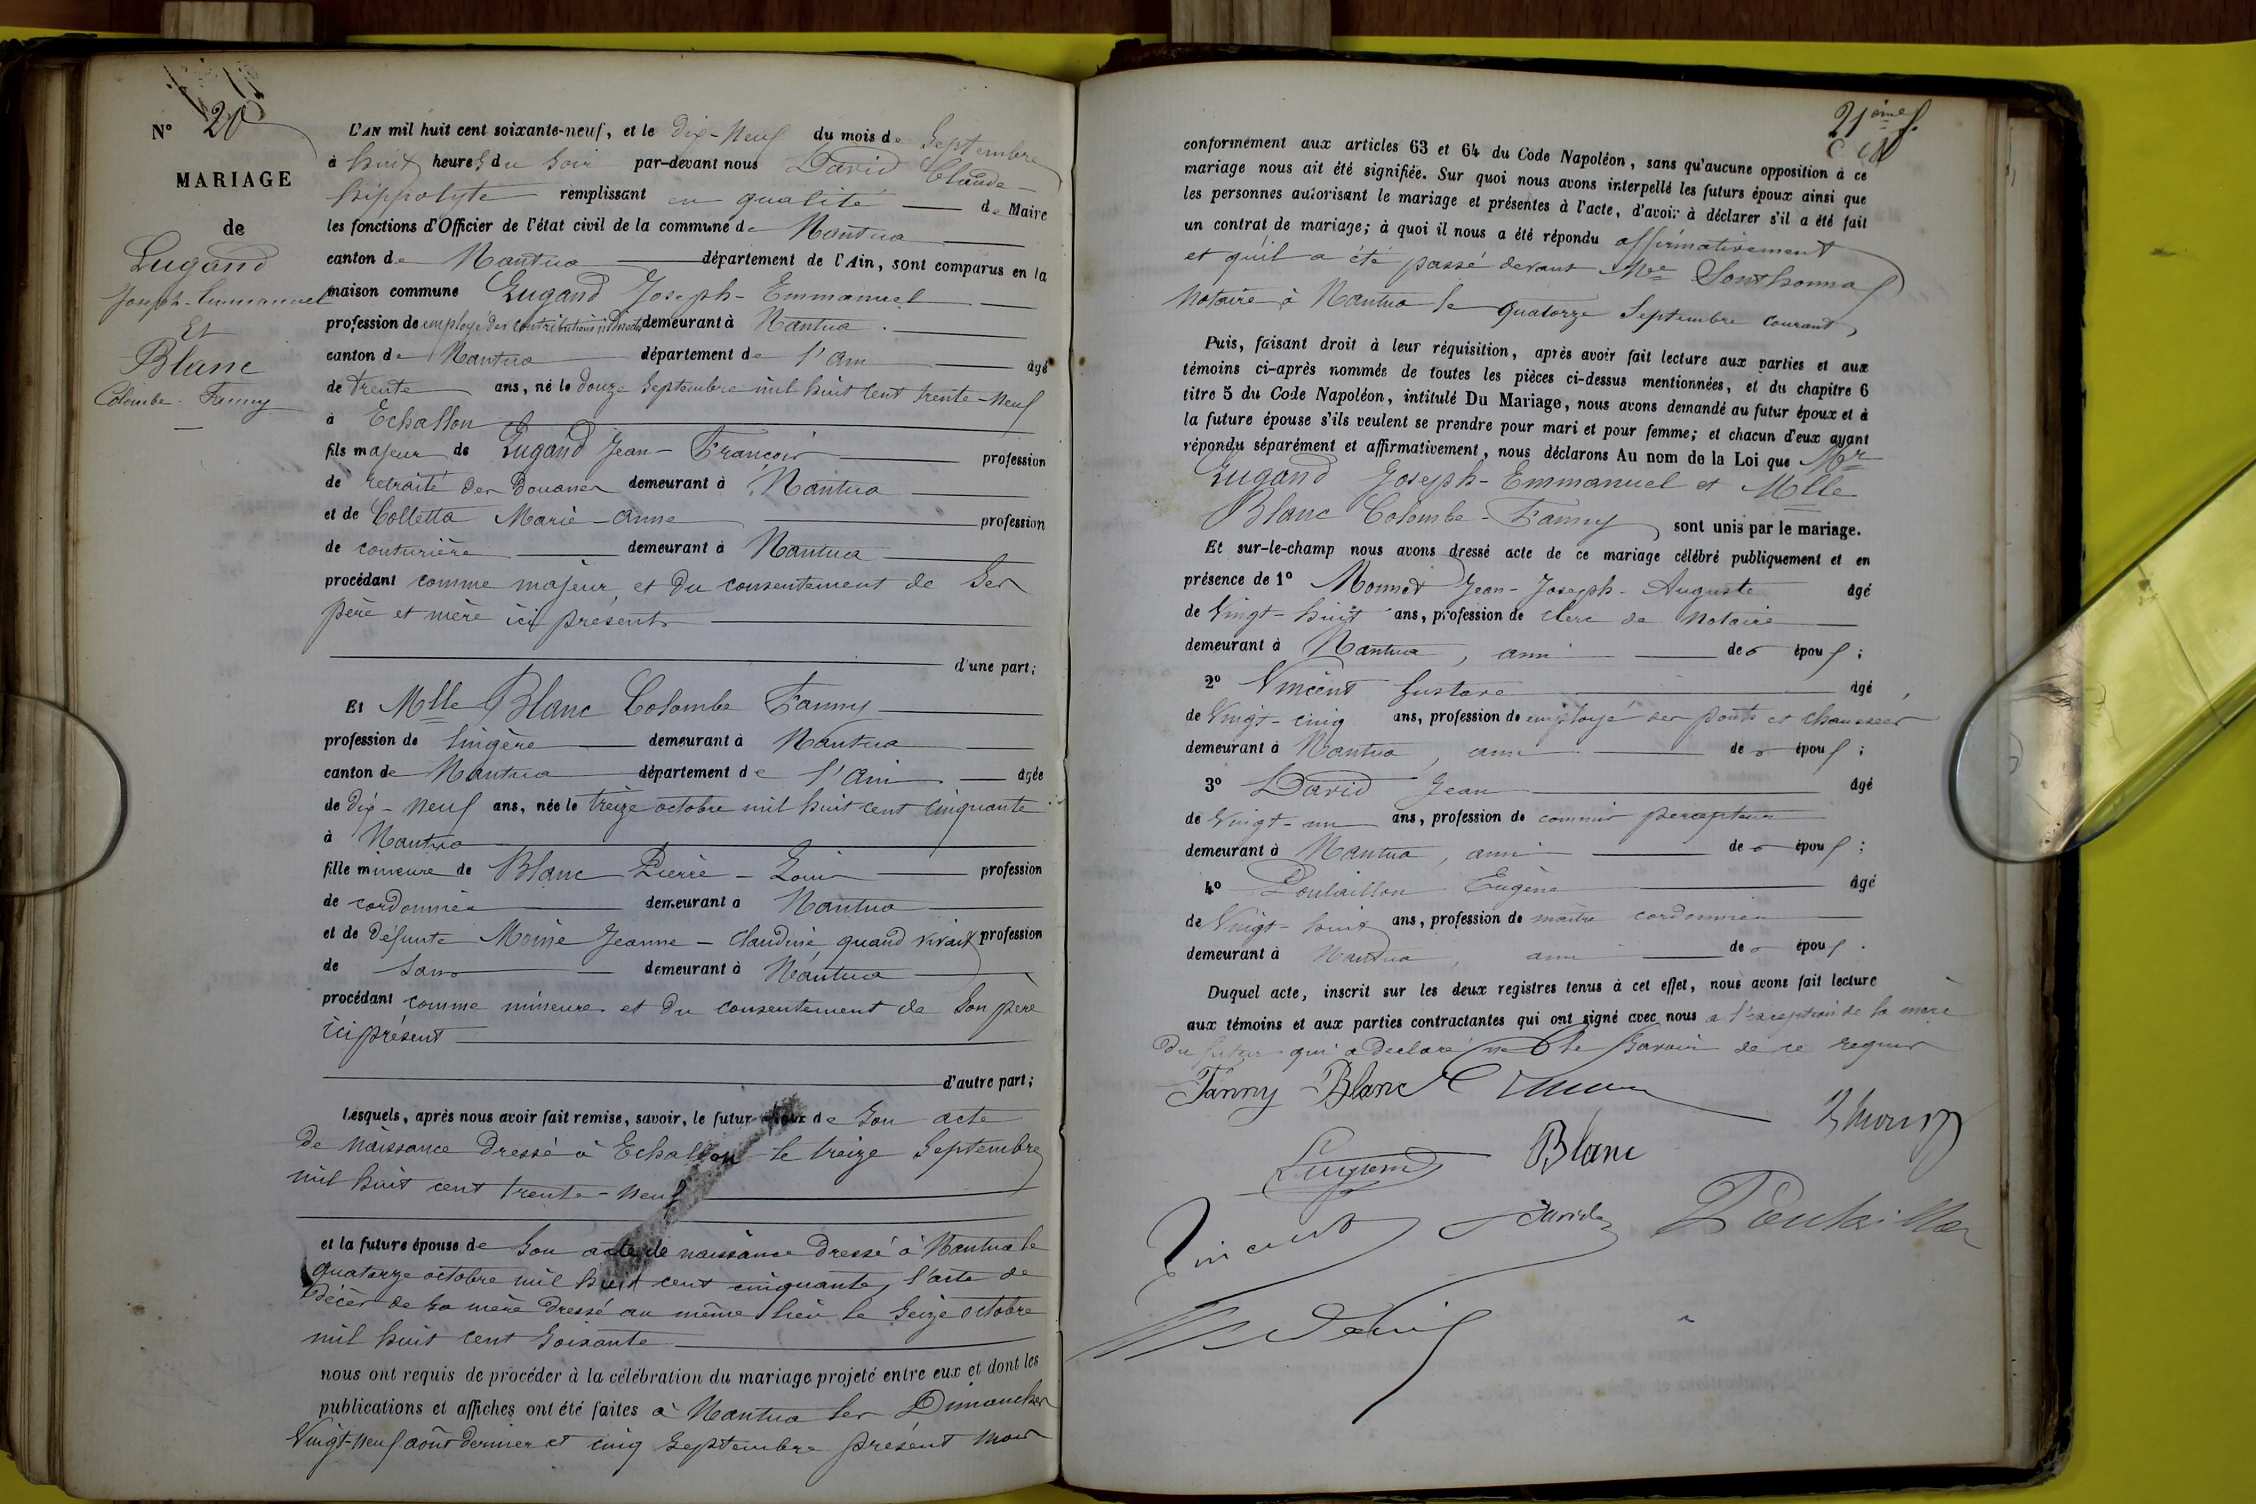 N° 20
MARIAGE
de
Lugand
Joseph-Emmanuel
Et
Blanc
Colombe-Fanny
L'AN mil huit cent soixante-neuf, et le dix-Neuf du mois de Septembre
à huit heures du Soir par-devant nous David Claude-
hippolyte remplissant en qualité de Maire
les fonctions d'Officier de l'état civil de la commune de Nantua
canton de Nantua département de l'Ain, sont comparus en la
maison commune Lugand Joseph-Emmanuel
profession de employé des Contributions indirectes demeurant à Nantua.
canton de Nantua département de l'ain âgé
de trente ans, né le douze Septembre mil huit cent trente-neuf
à Echallon
fils majeur de Lugand Jean-François profession
de retraité des Douanes demeurant à Nantua
et de Colletta Marie-anne profession
de couturière demeurant à Nantua
procédant comme majeur et du consentement de Ses
père et mère ici présents
d'une part;
Et Mlle Blanc Colombe Fanny
profession de lingère demeurant à Nantua
canton de Nantua département de l'Ain âgée
de dix-neuf ans, née le treize octobre mil huit cent cinquante
à Nantua
fille mineure de Blanc Pierre-Louis profession
de cordonnier demeurant à Nantua
et de défunte Moine Jeanne-Claudine quand vivait profession
de sans demeurant à Nantua
procédant comme mineure et du consentement de Son père
ici présent
d'autre part;
Lesquels, après nous avoir fait remise, savoir, le futur époux de Son acte
de naissance dressé à Echallon le treize Septembre
mil huit cent trente-neuf
et la future épouse de Son acte de naissance dressé à Nantua le
quatorze octobre mil huit cent cinquante, l'acte de
décès de Sa mère dressé au même lieu le Seize octobre
mil huit cent Soixante
nous ont requis de procéder à la célébration du mariage projeté entre eux et dont les
publications et affiches ont été faites à Nantua les Dimanches
Vingt-neuf août dernier et cinq Septembre présent mois
21ème f.
conformément aux articles 63 et 64 du Code Napoléon, sans qu'aucune opposition à ce
mariage nous ait été signifiée. Sur quoi nous avons interpellé les futurs époux ainsi que
les personnes autorisant le mariage et présentes à l'acte, d'avoir à déclarer s'il a été fait
un contrat de mariage; à quoi il nous a été répondu affirmativement
et qu'il a été passé devant Me Sonthonnas
Notaire à Nantua le quatorze Septembre courant
Puis, faisant droit à leur réquisition, après avoir fait lecture aux parties et aux
témoins ci-après nommés de toutes les pièces ci-dessus mentionnées, et du chapitre 6
titre 5 du Code Napoléon, intitulé Du Mariage, nous avons demandé au futur époux et à
la future épouse s'ils veulent se prendre pour mari et pour femme; et chacun d'eux ayant
répondu séparément et affirmativement, nous déclarons Au nom de la Loi que Mr
Lugand Joseph-Emmanuel et Mlle
Blanc Colombe-Fanny sont unis par le mariage.
Et sur-le-champ nous avons dressé acte de ce mariage célébré publiquement et en
présence de 1° Monnet Jean-Joseph-Auguste âgé
de Vingt-huit ans, profession de clerc de Notaire
demeurant à Nantua, ami des époux;
2° Vincent Gustave âgé,
de Vingt-cinq ans, profession de employé des ponts et chaussées
demeurant à Nantua, ami des époux;
3° David Jean âgé
de Vingt-un ans, profession de commis percepteur
demeurant à Nantua, ami des époux;
4° Poulaillon Eugène âgé
de Vingt-huit ans, profession de maître cordonnier
demeurant à Nantua, ami des époux.
Duquel acte, inscrit sur les deux registres tenus à cet effet, nous avons fait lecture
aux témoins et aux parties contractantes qui ont signé avec nous a l'exception de la mère
du futur qui a déclaré ne le Savoir de ce requis
Fanny Blanc
Lugand Blanc
Vincent David Poulaillon
David